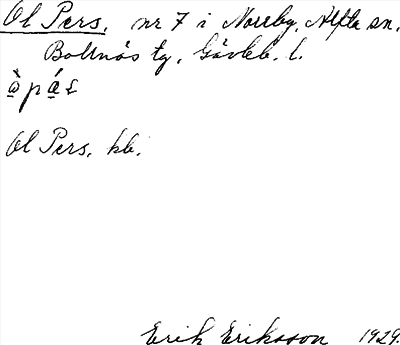 Ol Pers, nr 7 i Norrby, Alfta sn,
Bollnäs tg, Gävleb. l.
Ol Pers, kb.
Erik Eriksson 1929.